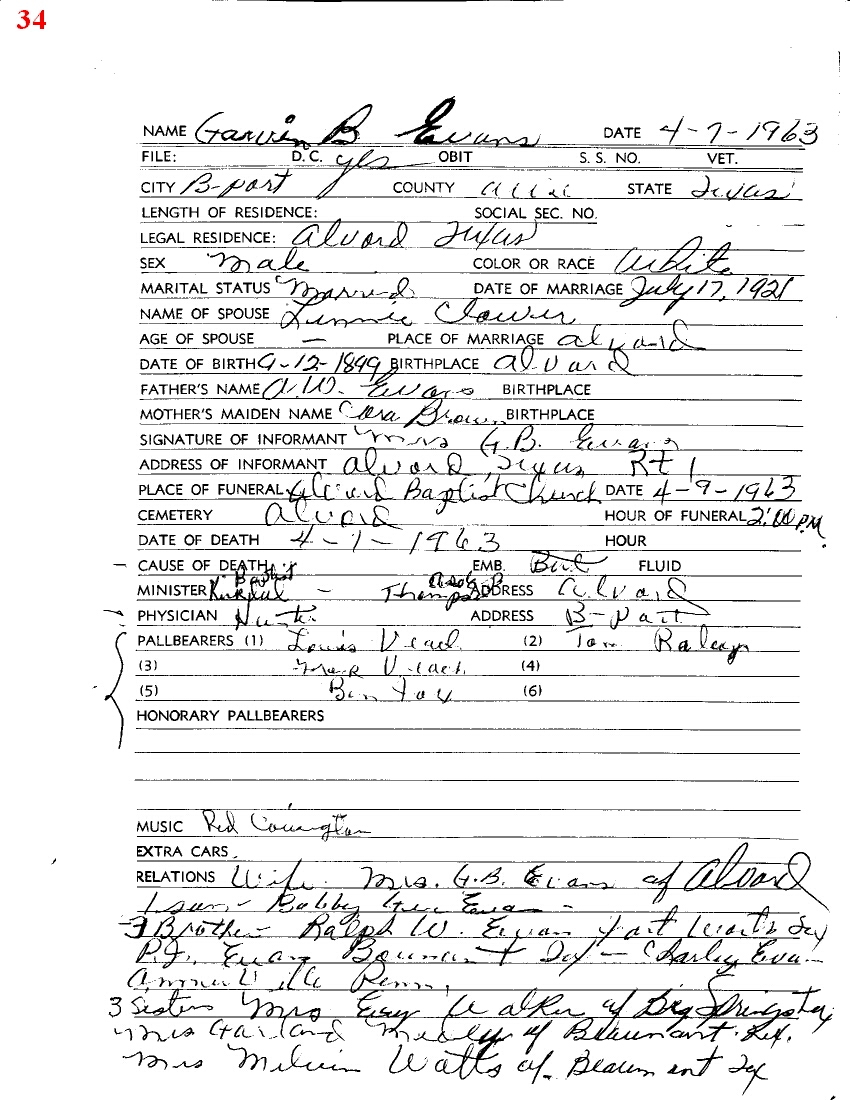 34
NAME Garvin B Evans DATE 4-7-1963
FILE: D.C. yes OBIT S. S. NO. VET.
CITY B-port COUNTY Wise STATE Texas
LENGTH OF RESIDENCE: SOCIAL SEC. NO.
LEGAL RESIDENCE: Alvord Texas
SEX Male COLOR OR RACE White
MARITAL STATUS Married DATE OF MARRIAGE July 17, 1921
NAME OF SPOUSE Clower
AGE OF SPOUSE — PLACE OF MARRIAGE Alvord
DATE OF BIRTH 9-12-1899 BIRTHPLACE Alvord
FATHER'S NAME A.W. Evans BIRTHPLACE
MOTHER'S MAIDEN NAME Cora Brown BIRTHPLACE
SIGNATURE OF INFORMANT Mrs G.B. Evans
ADDRESS OF INFORMANT Alvord, Texas Rt 1
PLACE OF FUNERAL Alvord Baptist Church DATE 4-9-1963
CEMETERY Alvord HOUR OF FUNERAL 2:00 P.M.
DATE OF DEATH 4-7-1963 HOUR
CAUSE OF DEATH EMB. FLUID
Baptist
MINISTER - ADDRESS Alvord
PHYSICIAN ADDRESS B-port
PALLBEARERS (1) Louis Veach (2) Tom
(3) Veach (4)
(5) Ben Fox (6)
HONORARY PALLBEARERS
MUSIC Red Covington
EXTRA CARS
RELATIONS Wife Mrs. G.B. Evans of Alvord
1 son - Bobby Evans -
3 Brother Ralph W. Evans Fort Worth Tex
P.J. Evans Beaumont Tex - Charley Evans
Annville Penn,
3 Sisters Mrs Walker of Big Springs Tex,
Mrs Garland of Beaumont. Tex.
Mrs Melvin Watts of. Beaumont Tex